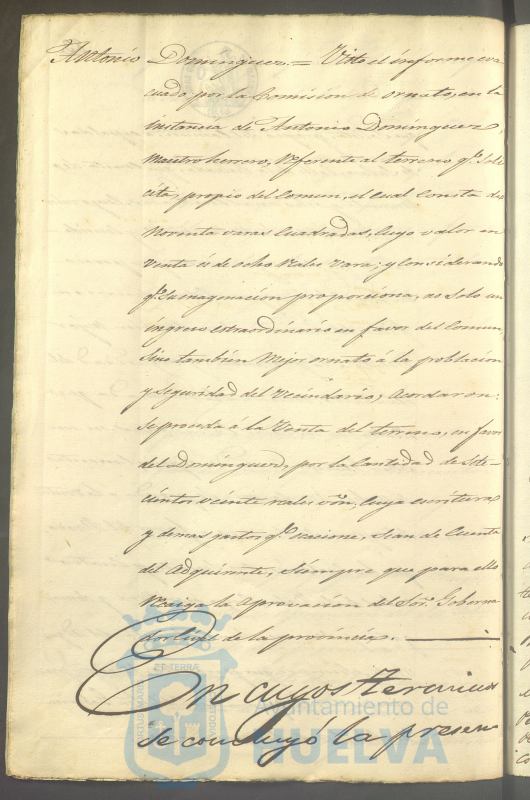 Antonio Dominguez.= Visto el informe eva
cuado por la Comision de ornato, en la
instancia de Antonio Dominguez,
Maestro herrero, referente al terreno qe. Soli
cita, propio del Comun, el Cual Consta de
Noventa varas Cuadradas, Cuyo valor en
venta és de ocho reales vara; y Considerando
qe. Su enagenacion proporciona, no Solo un
ingreso extraordinario en favor del Comun,
Sino también Mejor ornato á la poblacion
y Seguridad del Vecindario, Acordaron:
Se proceda á la Venta del terreno, en favor
del Dominguez, por la Cantidad de Sete-
cientos veinte reales von, Cuya escritura
y demas gastos qe. Ocacione, Sean de Cuenta
del Adquirente, Siempre que para ello
Recaiga la Aprovacion del Sor. Goberna
dor Civil de la provincia.
En cuyos terminos
Se concluyó la presen
PORTUS MARIS ET TERRÆ CUSTODIA
Ayuntamiento de
HUELVA